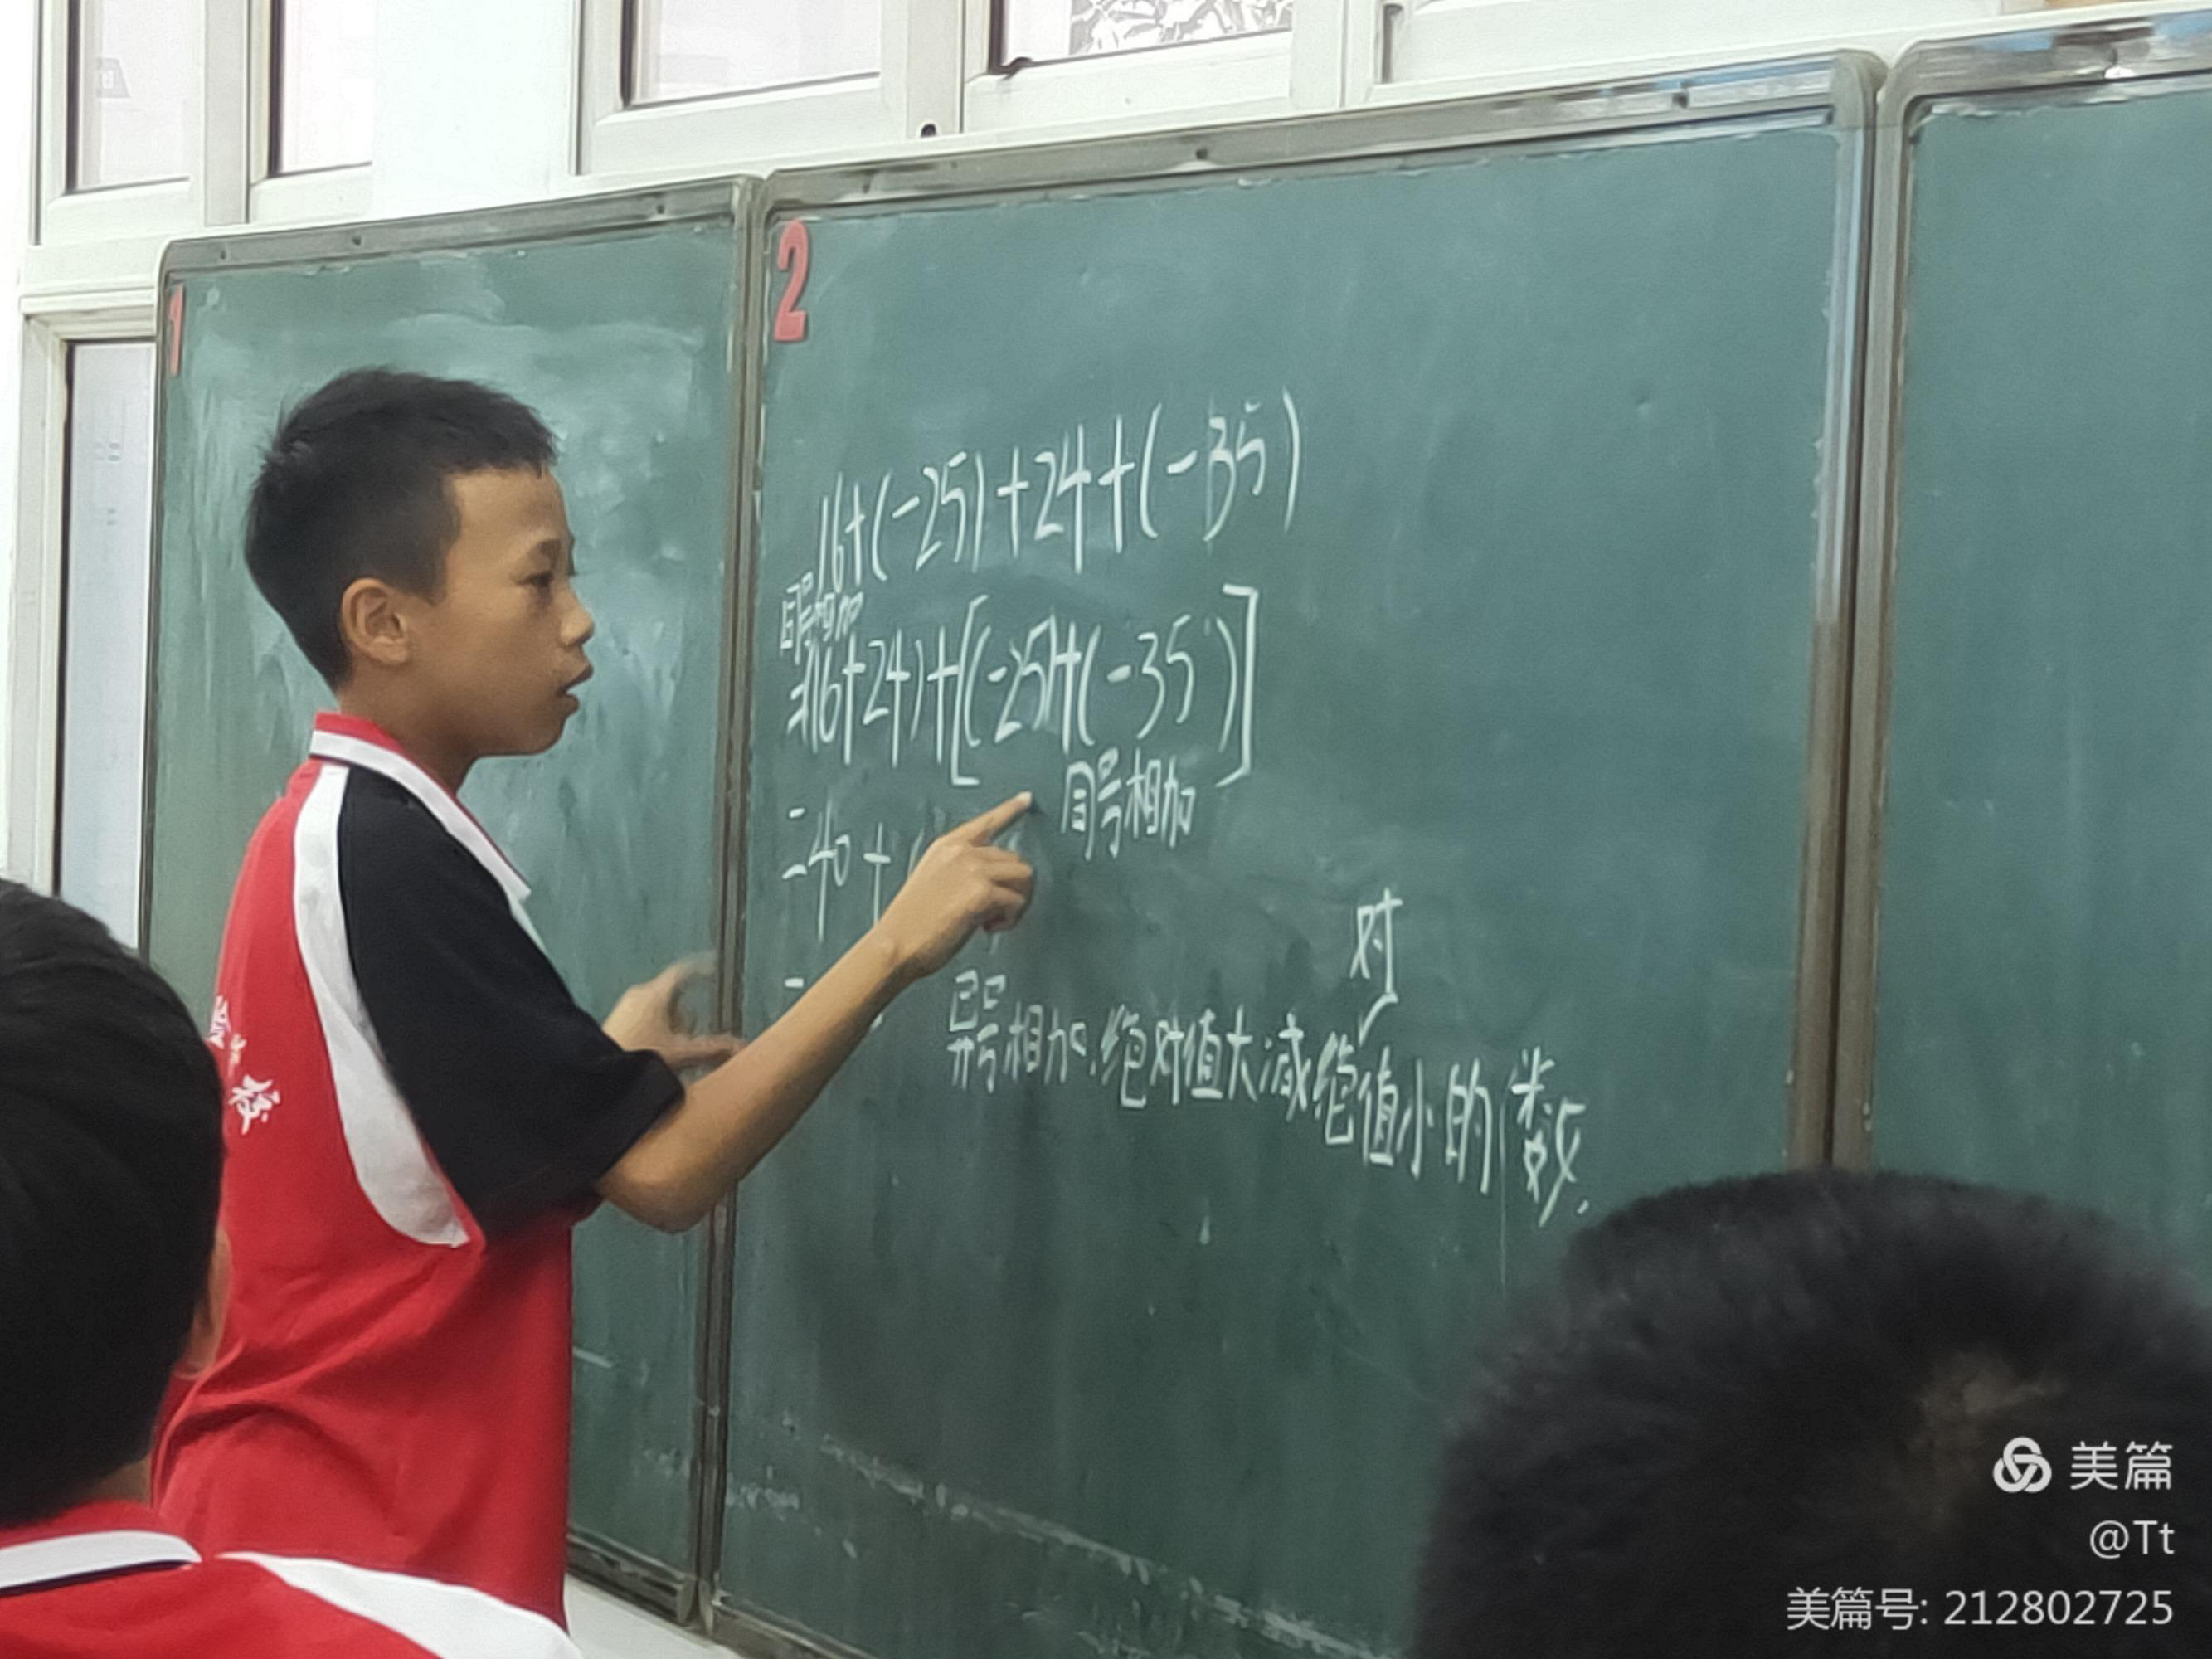 1
2
16+(-25)+24+(-35)
同号相加
=(16+24)+[(-25)+(-35)]
同号相加
=40+(
对
异号相加.绝对值大减绝值小的数.
校
美篇
@Tt
美篇号: 212802725